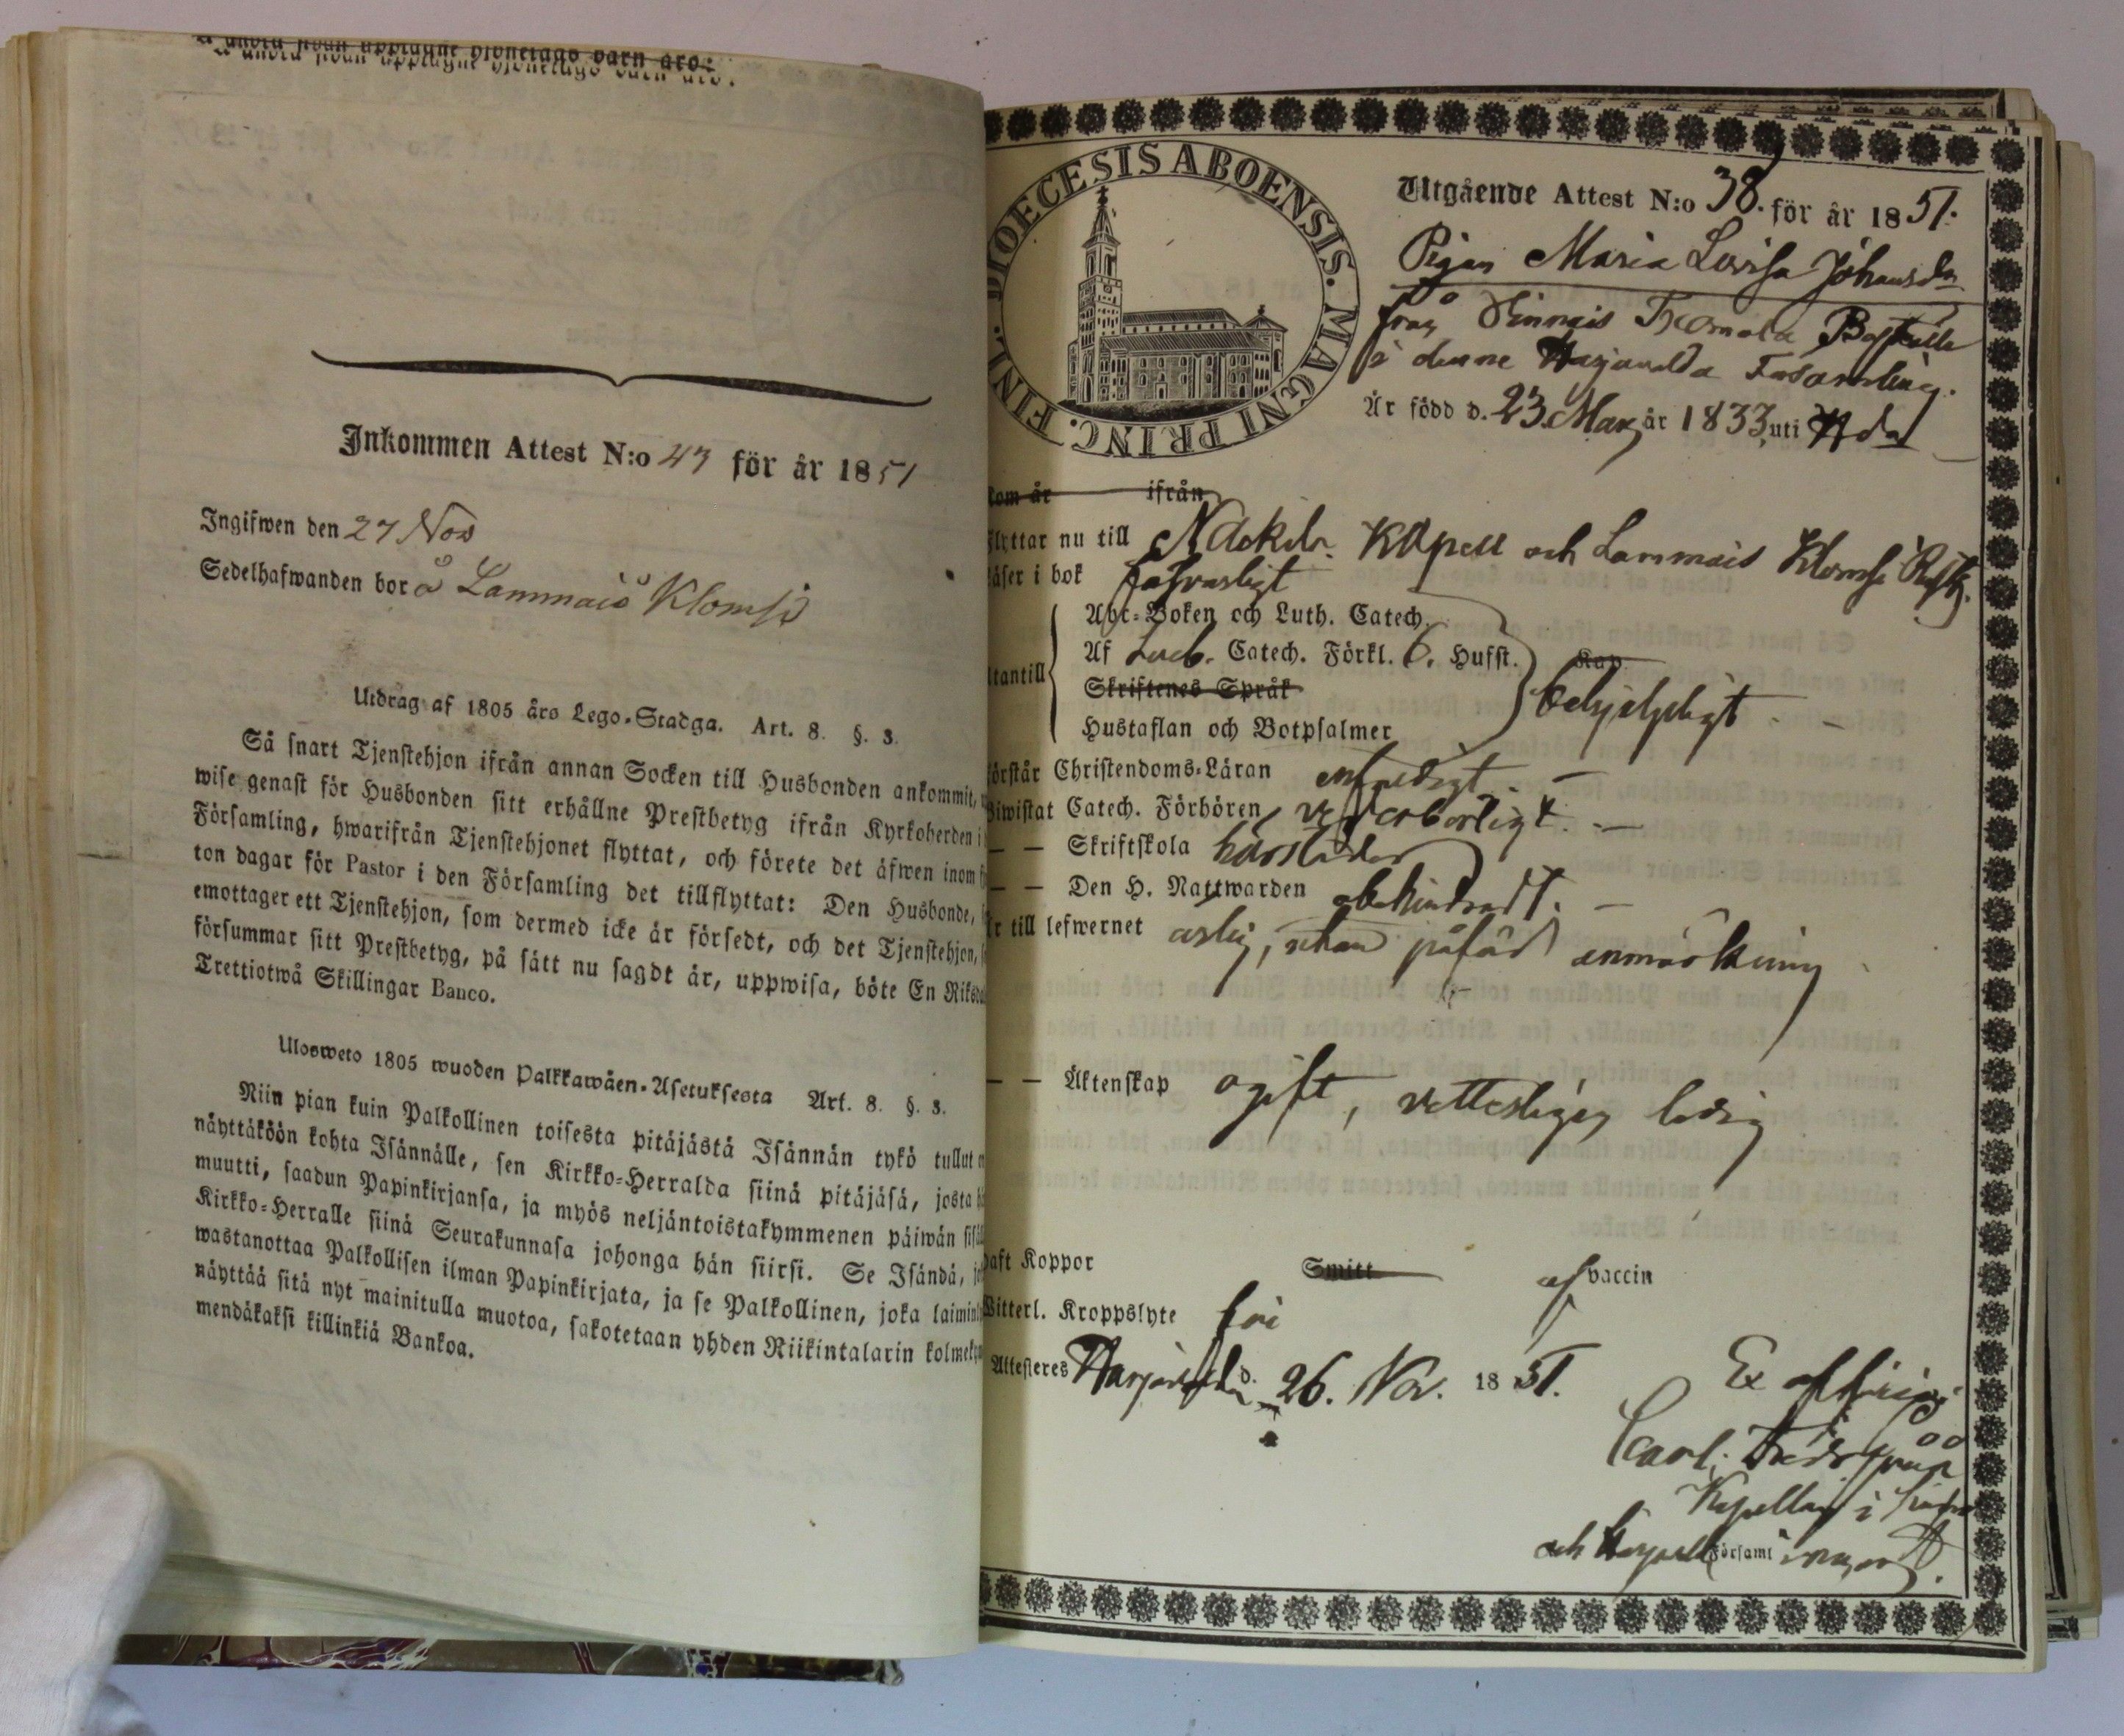 a andra sidan upptagne hjonelags barn äro:
Inkommen Attest N:o 43 för år 1851
Ingifwen den 27 Nov
Sedelhafwanden bor å Lammais Klomsi
Utdrag af 1805 års Lego-Stadga. Art. 8. §. 3.
Så snart Tjenstehjon ifrån annan Socken till Husbonden ankommit,
wise genast för Husbonden sitt erhållne Prestbetyg ifrån Kyrkoherden i
Församling, hwarifrån Tjenstehjonet flyttat, och förete det äfwen inom
ton dagar för Pastor i den Församling det tillflyttat: Den Husbonde,
emottager ett Tjenstehjon, som dermed icke är försedt, och det Tjenstehjon,
försummar sitt Prestbetyg, på sätt nu sagdt är, uppwisa, böte En Riksda
Trettiotwå Skillingar Banco.
Ulosweto 1805 wuoden Palkkawäen-Asetuksesta Art. 8. §. 3.
Niin pian kuin Palkollinen toisesta pitäjästä Isännän tykö tullut
näyttäköön kohta Isännälle, sen Kirkko-Herralda siinä pitäjäsä, josta
muutti, saadun Papinkirjansa, ja myös neljäntoistakymmenen päiwän sisäl
Kirkko-Herralle siinä Seurakunnasa johonga hän siirsi. Se Isändä,
wastanottaa Palkollisen ilman Papinkirjata, ja se Palkollinen, joka laimin
näyttää sitä nyt mainitulla muotoa, sakotetaan yhden Riikintalarin kolmeky
mendäkaksi killinkiä Bankoa.
DIOECESIS ABOENSIS. MAGNI PRINC. FINL.
Utgående Attest N:o 38. för år 1851.
Pigan Maria Lovisa Johansdr
från Tuomola
i denne Harjavalda Församling.
Är född d. 23 Mars år 1833, uti Hda
kom år ifrån
flyttar nu till Nackila Kapell och Lammais Klomsi
läser i bok försvarligt
Abc-Boken och Luth. Catech.
Af Luth. Catech. Förkl. 6. Hufst. Kap
utantill
Skriftenes Språk
behjelpligt
Hustaflan och Botpsalmer
förstår Christendoms-Läran enfaldigt
Biwistat Catech. Förhören vederbörligt.
— — Skriftskola härstädes
— — Den H. Nattwarden obehindradt.
Är till lefwernet ärlig, utan påförd anmärkning
— — Äktenskap ogift, vetterligen ledig
haft Koppor Smitt af vaccin
Witterl. Kroppslyte fri
Attesteres Harjavalda d. 26. Nov. 1851.
Ex officio
Carl
Kapellan i
och Harjavalda Församl